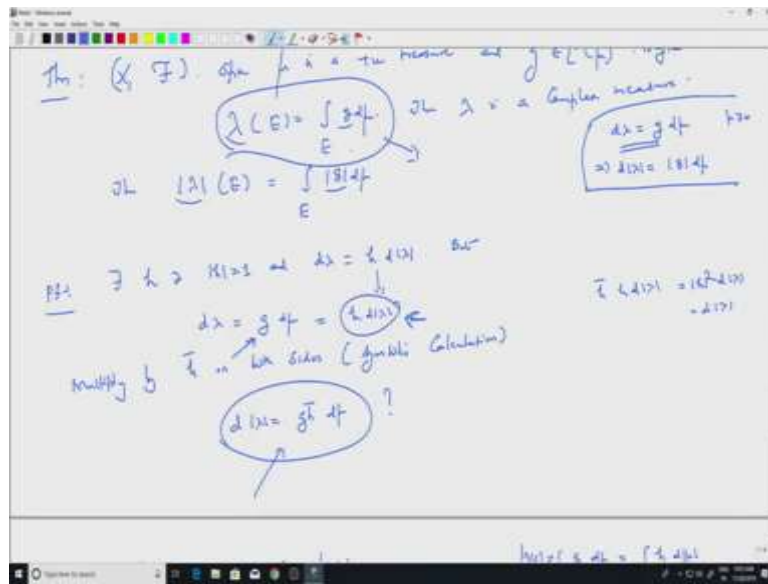 Thm: (X, F). μ is a +ve measure and g ∈ L¹(μ).
λ(E) = ∫_E g dμ. Then λ is a Complex measure.
dλ = g dμ μ ≥ 0
⇒ d|λ| = |g| dμ
Then |λ|(E) = ∫_E |g| dμ
Pf: ∃ h ∋ |h|=1 and dλ = h d|λ| But
h̄ h d|λ| = |h|² d|λ|
= d|λ|
dλ = g dμ = h d|λ|
Multiply by h̄ on both sides (Symbolic Calculation)
d|λ| = g h̄ dμ ?